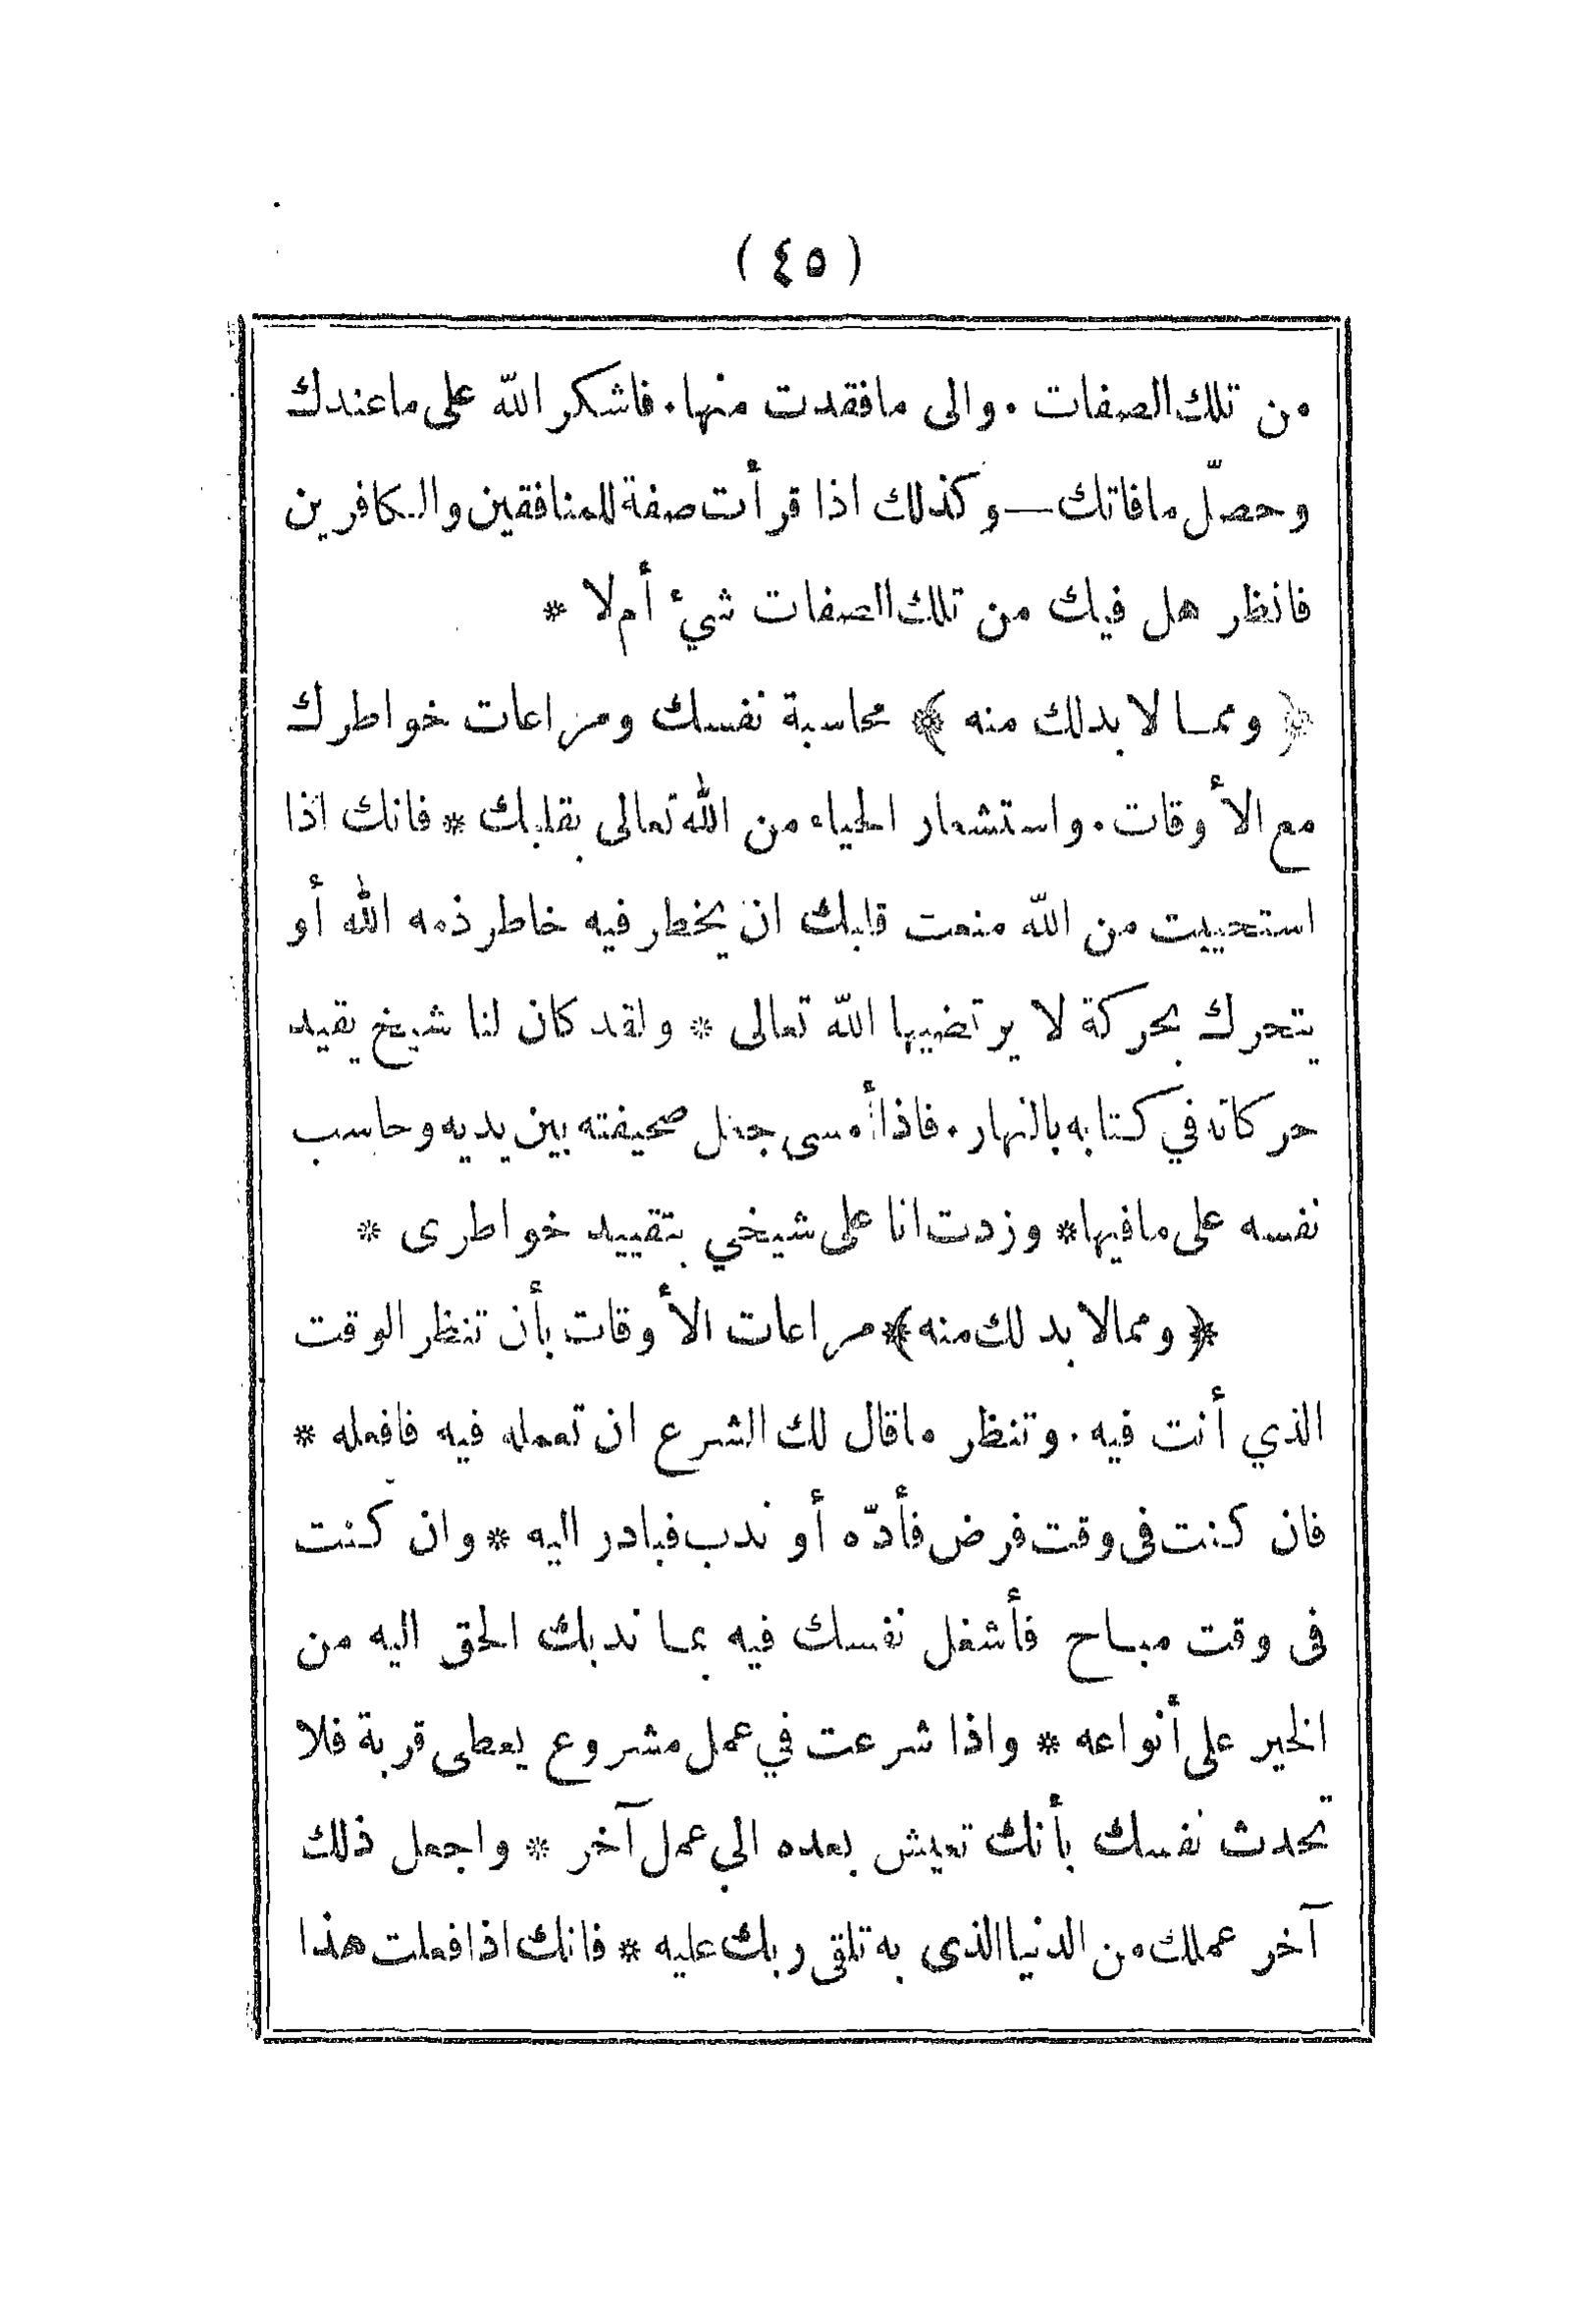 ( ٤٥ )
من تلك الصفات . والى مافقدت منها . فاشكر الله على ماعندك
وحصّل مافاتك — وكذلك اذا قرأت صفة للمنافقين والكافرين
فانظر هل فيك من تلك الصفات شيء أم لا *
﴿ ومما لا بدلك منه ﴾ محاسبة نفسك ومراعات خواطرك
مع الأوقات . واستشعار الحياء من الله تعالى بقلبك * فانك اذا
استحييت من الله منعت قلبك ان يخطر فيه خاطر ذمه الله أو
يتحرك بحركة لا يرتضيها الله تعالى * ولقد كان لنا شيخ يقيد
حركاته في كتابه بالنهار . فاذا أمسى جعل صحيفته بين يديه وحاسب
نفسه على مافيها * وزدت انا على شيخي بتقييد خواطرى *
﴿ ومما لا بد لك منه ﴾ مراعات الأوقات بأن تنظر الوقت
الذي أنت فيه . وتنظر ماقال لك الشرع ان تعمله فيه فافعله *
فان كنت فى وقت فرض فأدّه أو ندب فبادر اليه * وان كنت
فى وقت مباح فأشغل نفسك فيه بما ندبك الحق اليه من
الخير على أنواعه * واذا شرعت في عمل مشروع يعطى قربة فلا
تحدث نفسك بأنك تعيش بعده الي عمل آخر * واجعل ذلك
آخر عملك من الدنيا الذى به تلقى ربك عليه * فانك اذا فعلت هذا